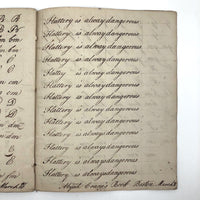 B B Flattery is alway dangerous
B Bb Flattery is alway dangerous
m bm Flattery is alway dangerous
bm Flattery is alway dangerous
C Flattery is alway dangerous
C Flattery is alway dangerous
C Flattery is alway dangerous
C Flattery is alway dangerous
D Flattery is alway dangerous
D Flattery is alway dangerous
dm Flattery is alway dangerous
dm Flattery is alway dangerous
Flattery is alway dangerous
Flattery is alway dangerous
Book Boston March